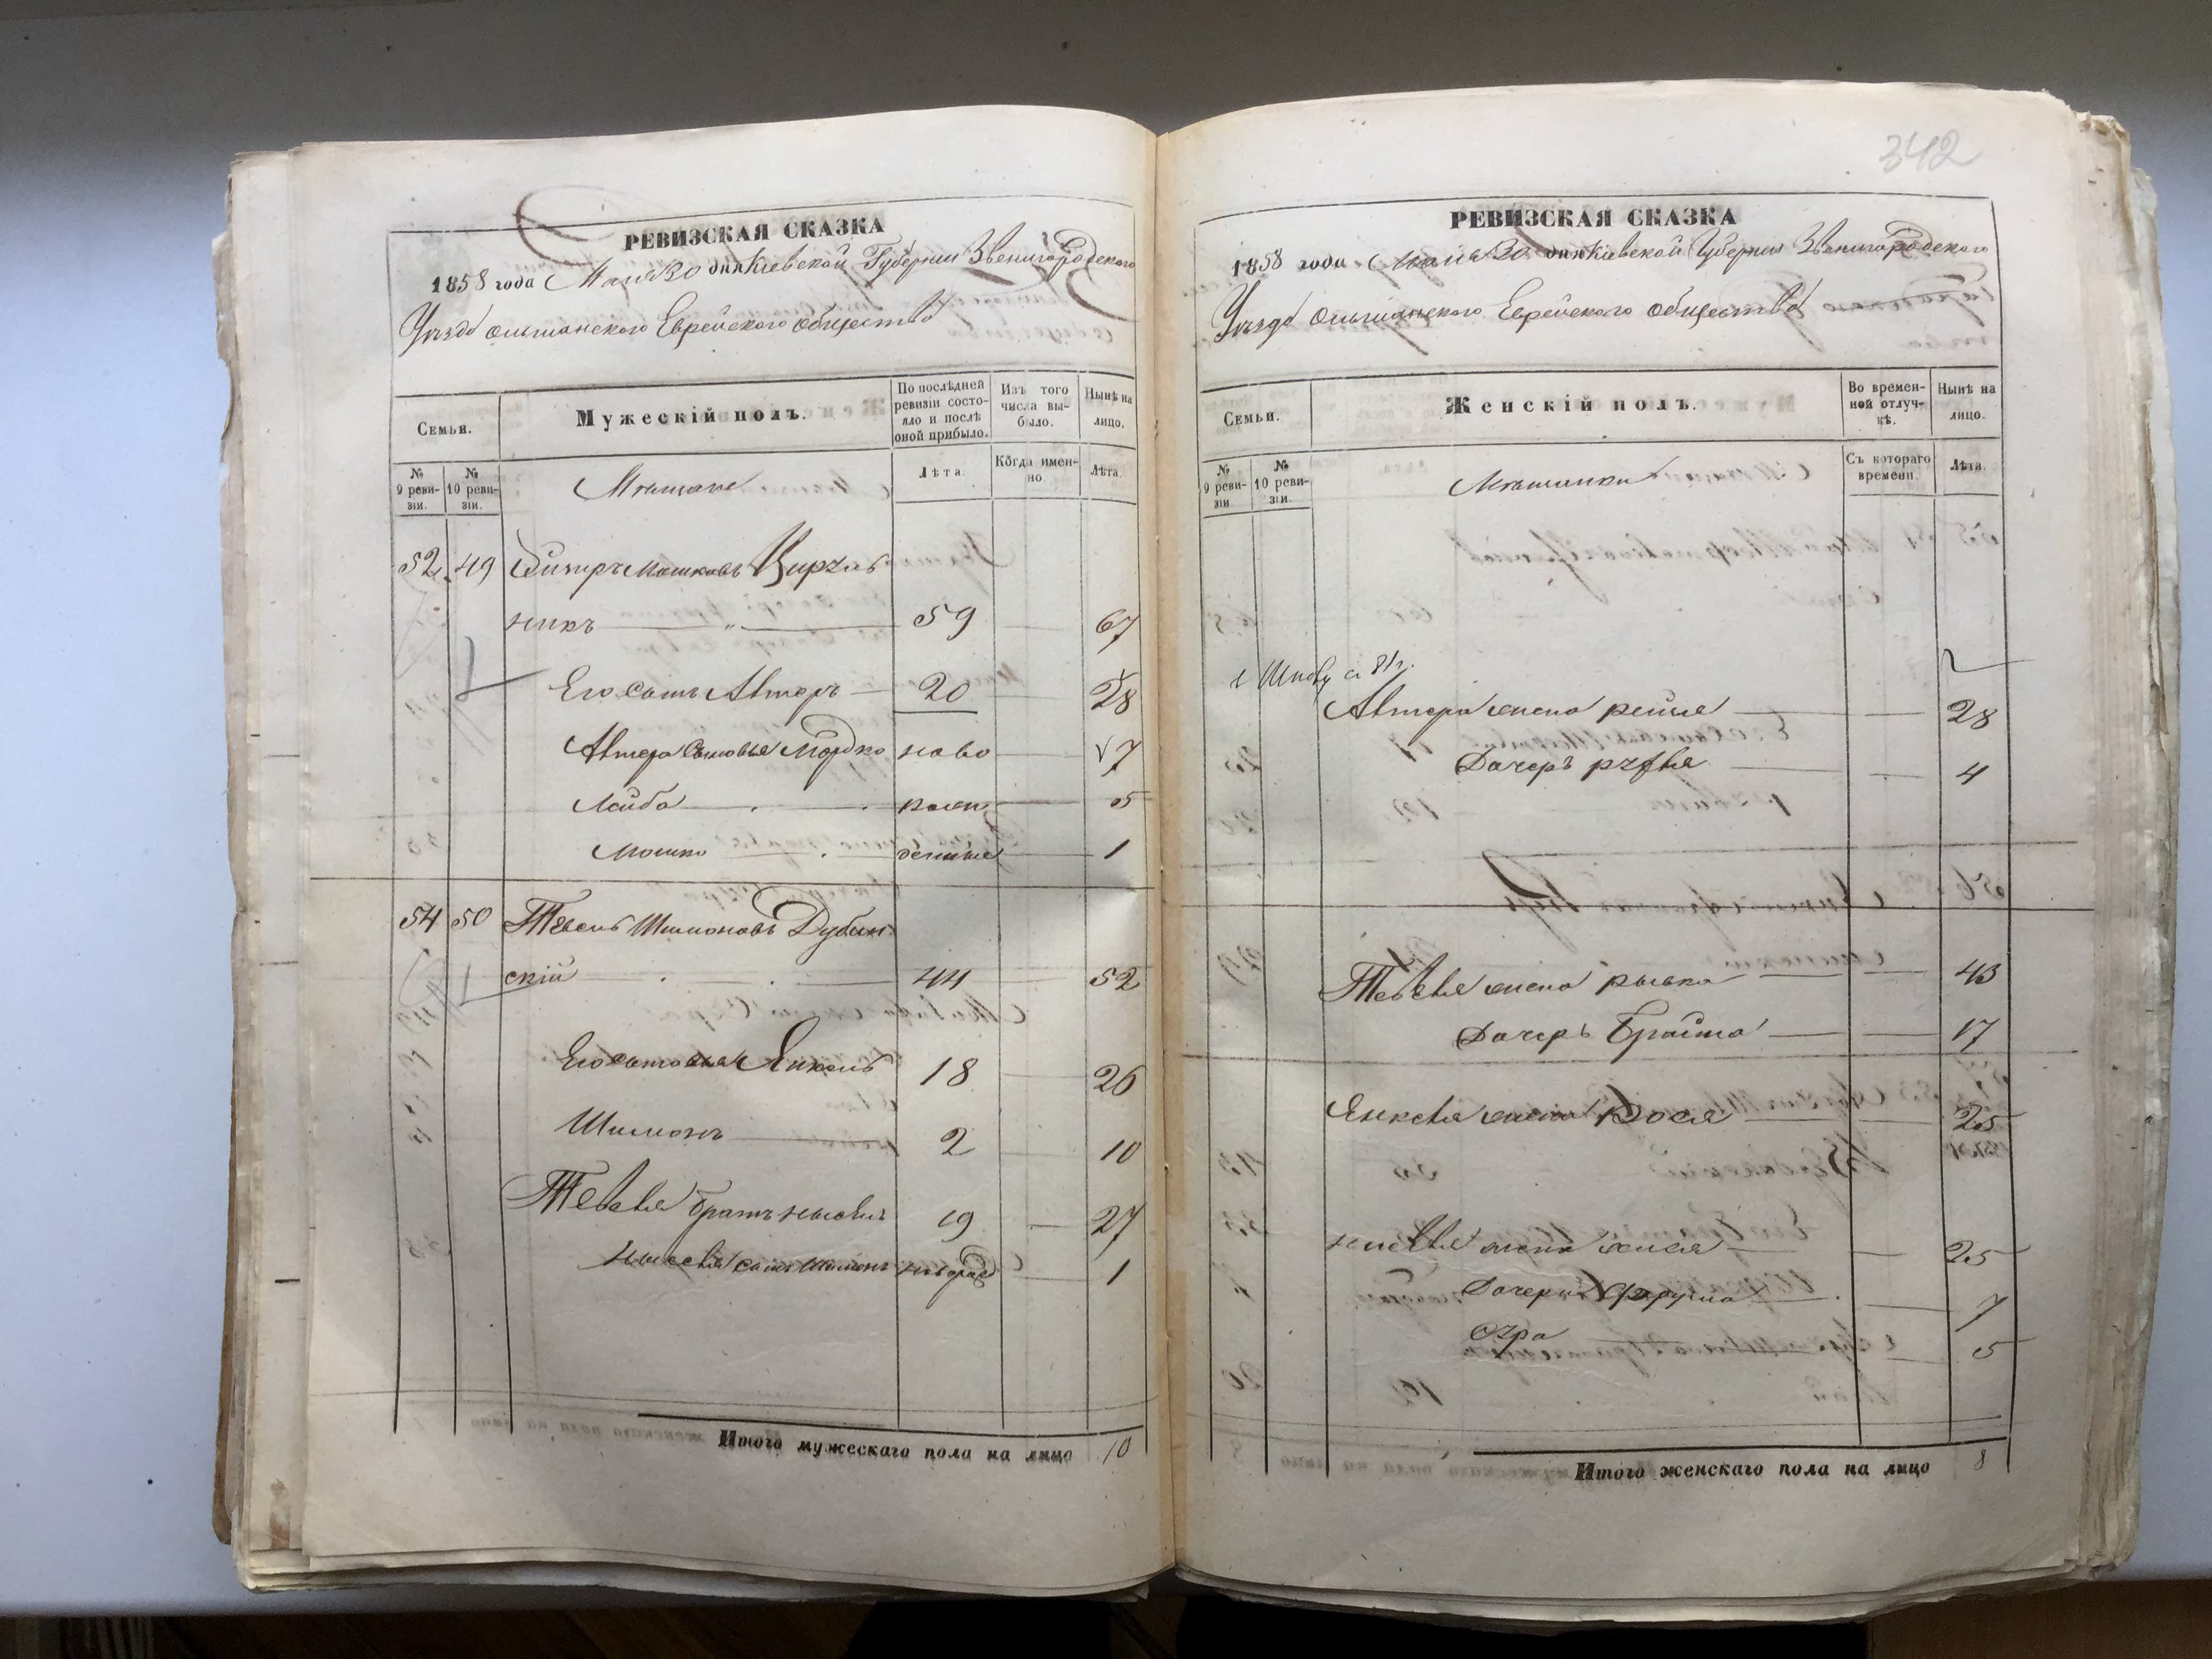 РЕВИЗСКАЯ СКАЗКА
1858 года Мая 30 дня Кіевской Губерніи Звенигородского
Уезда Ольшанского Еврейского общества
Семьи.
Мужескій полъ.
По послѣдней ревизіи состояло и послѣ оной прибыло.
Изъ того числа выбыло.
Нынѣ на лицо.
№ 9 ревизіи.
№ 10 ревизіи.
Мѣщане
Лѣта.
Когда именно.
Лѣта.
52 49 Мошковъ
никъ 59 67
Его сынъ Автеръ 20 28
Автера сыновья Мордко ново 7
Лейба рожден 5
Мошко денные 1
54 50 Тевель Шимоновъ Дубин
скій 44 52
Его сыновья Янкель 18 26
Шимонъ 2 10
Тевеля братъ 19 27
сынъ Шимонъ новорож 1
Итого мужескаго пола на лицо 10
342
РЕВИЗСКАЯ СКАЗКА
1858 года Мая 30 дня Кіевской Губерніи Звенигородского
Уезда Ольшанского Еврейского общества
Семьи.
Женскій полъ.
Во временной отлучкѣ.
Нынѣ на лицо.
№ 9 ревизіи
№ 10 ревизіи.
Мѣщанки
Съ котораго времени.
Лѣта.
Автера жена рейзя 28
Дочерь 4
Тевеля жена рывка 43
Дочерь Брайна 17
Янкеля жена Рося 25
жена 25
Дочери Фрума 7
5
Итого женскаго пола на лицо 8